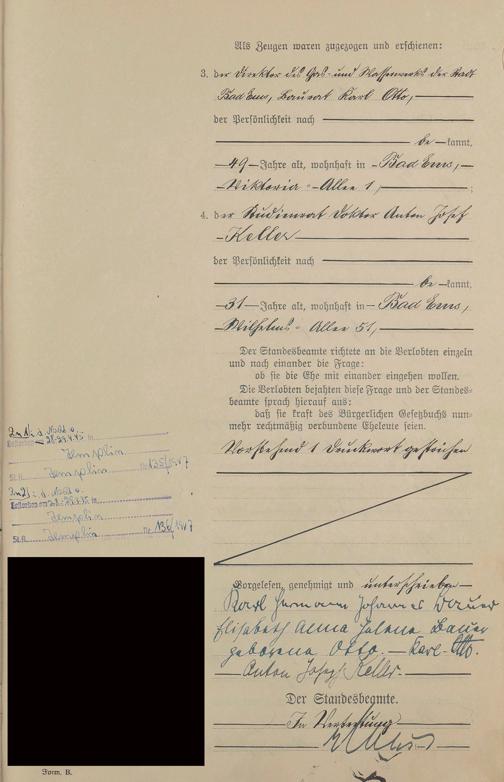 Als Zeugen waren zugezogen und erschienen:
3. der Direktor des Gas- und Wasserwerks der Stadt
Bad Ems, Baurat Karl Otto,
der Persönlichkeit nach
be kannt,
49 Jahre alt, wohnhaft in Bad Ems,
Viktoria-Allee 1, ;
4. der Studienrat Doktor Anton Josef
Keller
der Persönlichkeit nach
be kannt,
31 Jahre alt, wohnhaft in Bad Ems,
Wilhelms-Allee 51,
Der Standesbeamte richtete an die Verlobten einzeln
und nach einander die Frage:
ob sie die Ehe mit einander eingehen wollen.
Die Verlobten bejahten diese Frage und der Standes-
beamte sprach hierauf aus:
daß sie kraft des Bürgerlichen Gesetzbuchs nun-
mehr rechtmäßig verbundene Eheleute seien.
Vorstehend 1 Druckwort gestrichen
Zu 1: d.
28.
Templin
St.A. Templin Nr. 135/1947
Zu 2: d.
Templin
St.A. Templin Nr. 136/1947
Vorgelesen, genehmigt und unterschrieben
Karl Hermann Johannes
Elisabeth Anna Helene
geborene Otto. Karl Otto.
Anton Josef Keller.
Der Standesbeamte.
In Vertretung
Form. B.